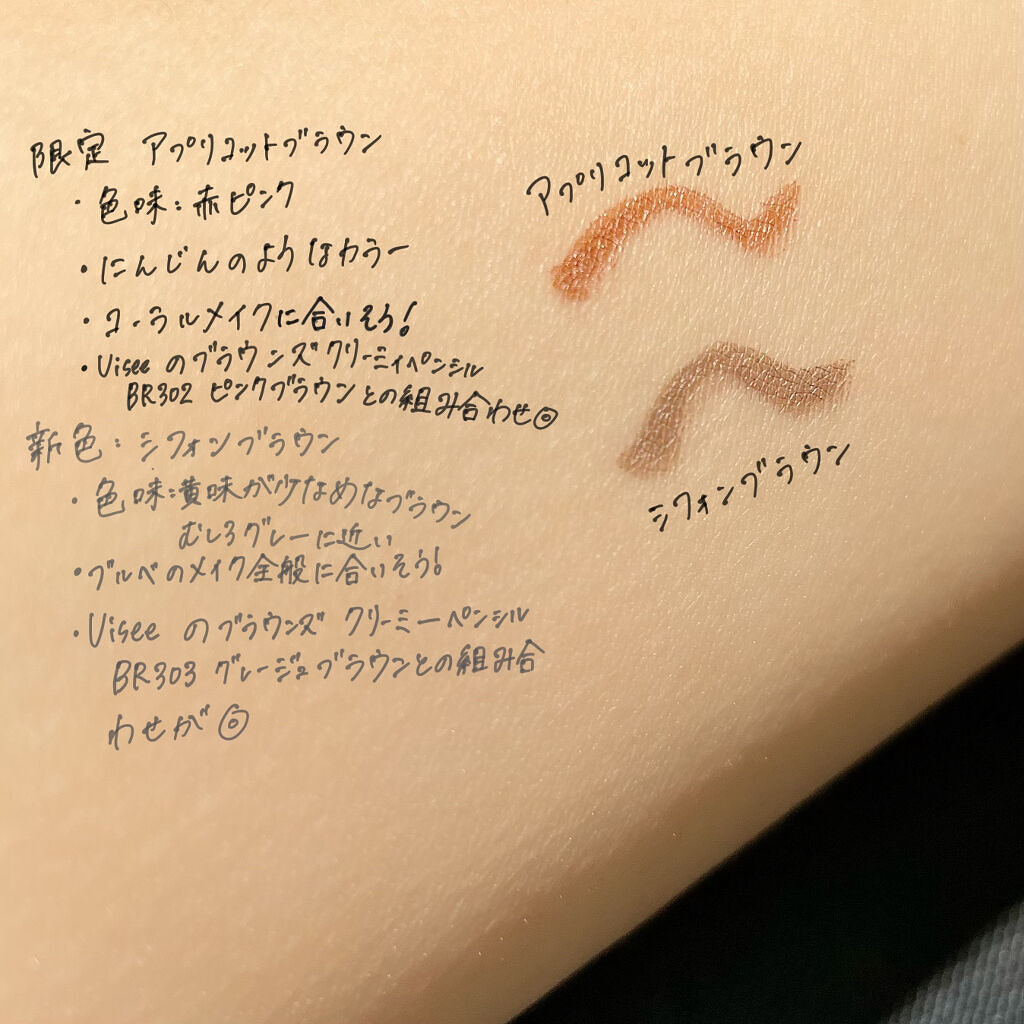 限定 アプリコットブラウン
・色味:赤ピンク
・にんじんのようなカラー
・コーラルメイクに合いそう!
・Visee のブラウンズクリーミィペンシル
BR302 ピンクブラウンとの組み合わせ◎
新色:シフォンブラウン
・色味:黄味が少なめなブラウン
むしろグレーに近い
・ブルベのメイク全般に合いそう!
・Visee のブラウンズ クリーミーペンシル
BR303 グレージュブラウンとの組み合
わせが◎
アプリコットブラウン
シフォンブラウン